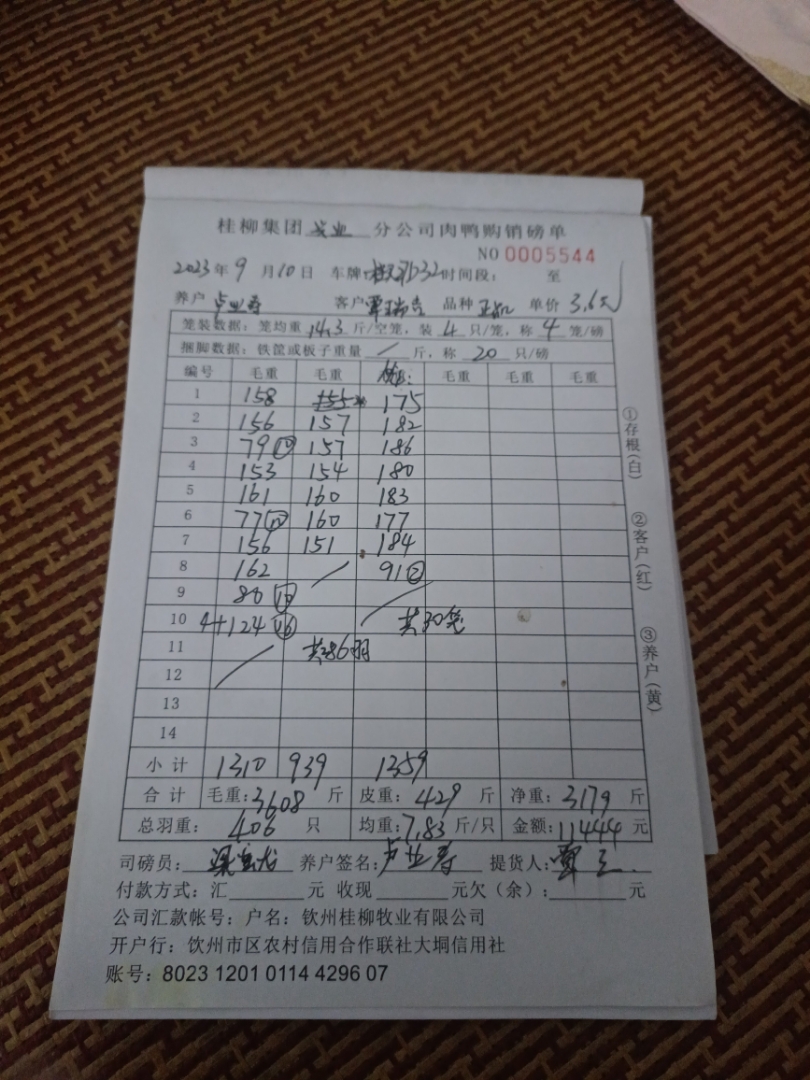 桂柳集团 分公司肉鸭购销磅单
NO 0005544
2023年9月10日 车牌: 时间段: 至
养户 卢业寿 客户 覃瑞 品种 单价 3.6元
笼装数据: 笼均重 14.3 斤/空笼, 装 4 只/笼, 称 4 笼/磅
捆脚数据: 铁筐或板子重量 / 斤, 称 20 只/磅
编号 毛重 毛重 毛重 毛重 毛重
1 158 175
2 156 157 182
3 79⑩ 157 186
4 153 154 180
5 161 160 183
6 77⑩ 160 177
7 156 151 184
8 162 91②
9 80⑩
10 4+124⑯ 共30笼
11
12
13
14
小计 1310 939 1359
合计 毛重:3608斤 皮重:429斤 净重:3179斤
总羽重: 406 只 均重:7.83斤/只 金额:11444元
司磅员: 养户签名:卢业寿 提货人:
付款方式: 汇 元 收现 元欠(余): 元
公司汇款帐号: 户名: 钦州桂柳牧业有限公司
开户行: 钦州市区农村信用合作联社大垌信用社
账号: 8023 1201 0114 4296 07
①存根(白)
②客户(红)
③养户(黄)